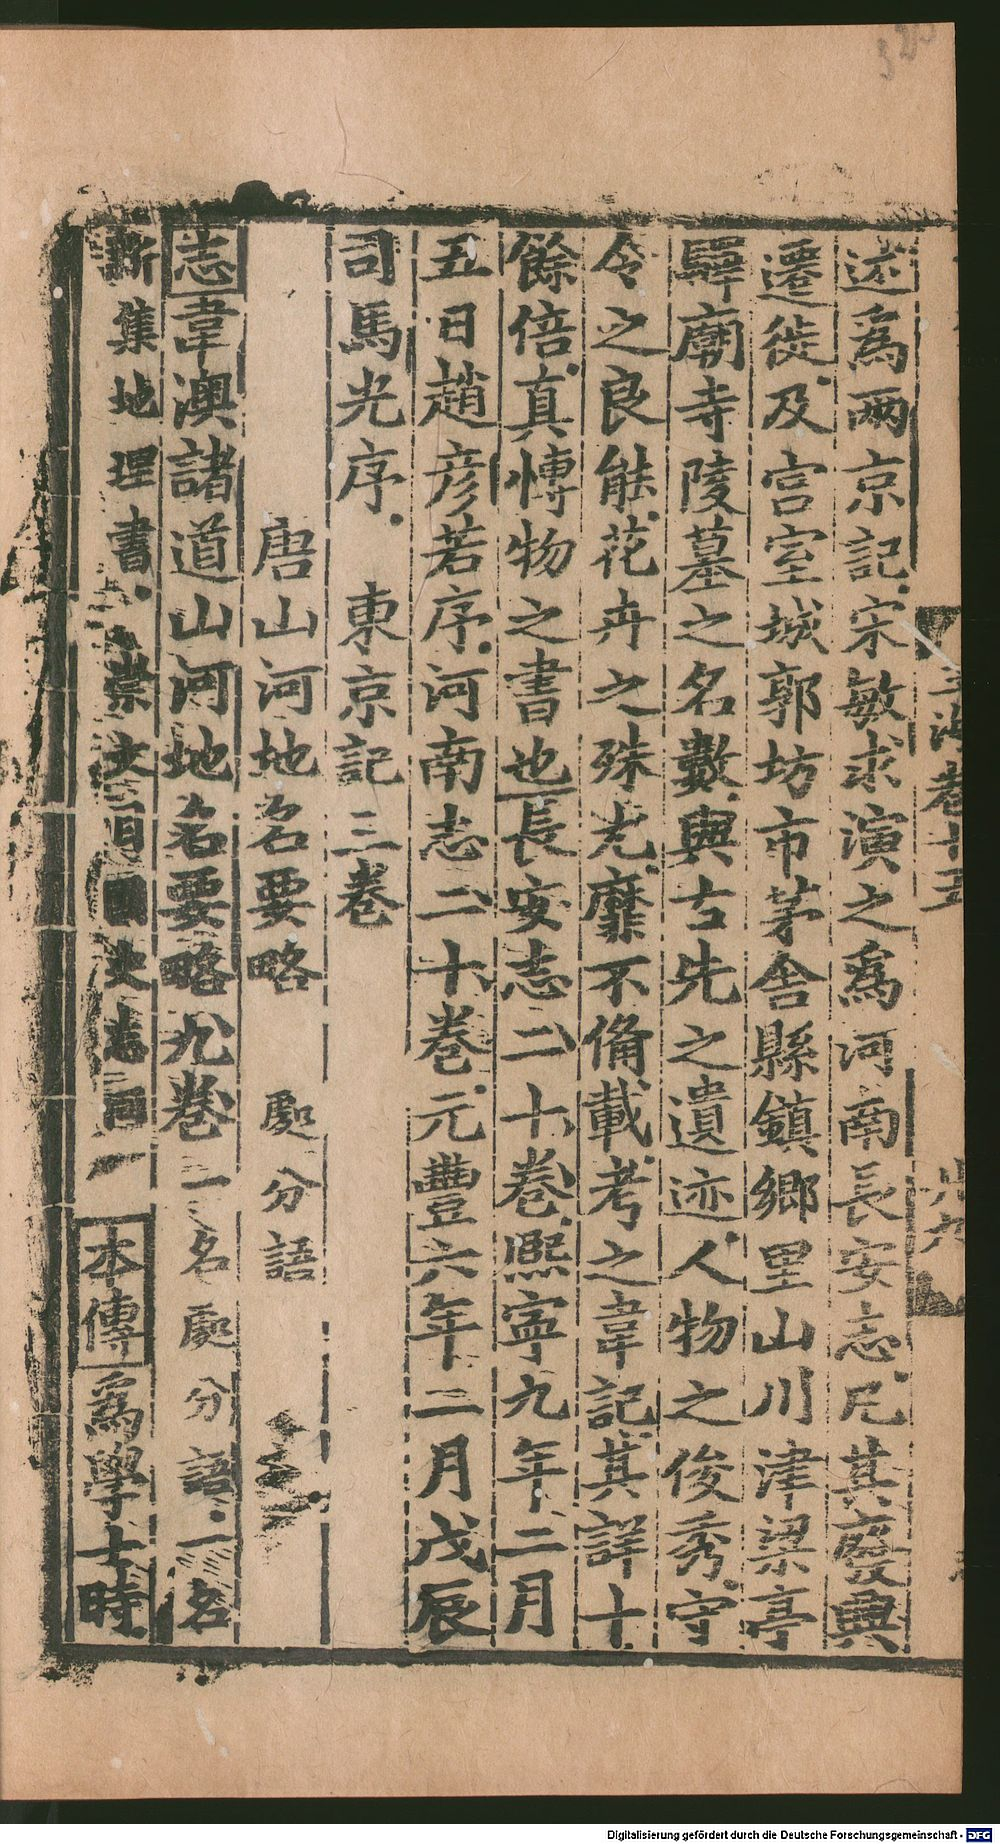 述為兩京記宋敏求演之為河南長安志凡其廢興
遷徙及宮室城郭坊市茅舍縣鎮鄉里山川津梁亭
驛廟寺陵墓之名數與古先之遺迹人物之俊秀守
令之良能花卉之殊尤靡不備載考之韋記其詳十
餘倍真博物之書也長安志二十卷熙寧九年二月
五日趙彥若序河南志二十卷元豐六年二月戊辰
司馬光序 東京記三卷
唐山河地名要略 處分語
志韋澳諸道山河地名要略九卷一名處分語一名
新集地理書 崇文目國史志同 本傳為學士時
Digitalisierung gefördert durch die Deutsche Forschungsgemeinschaft - DFG